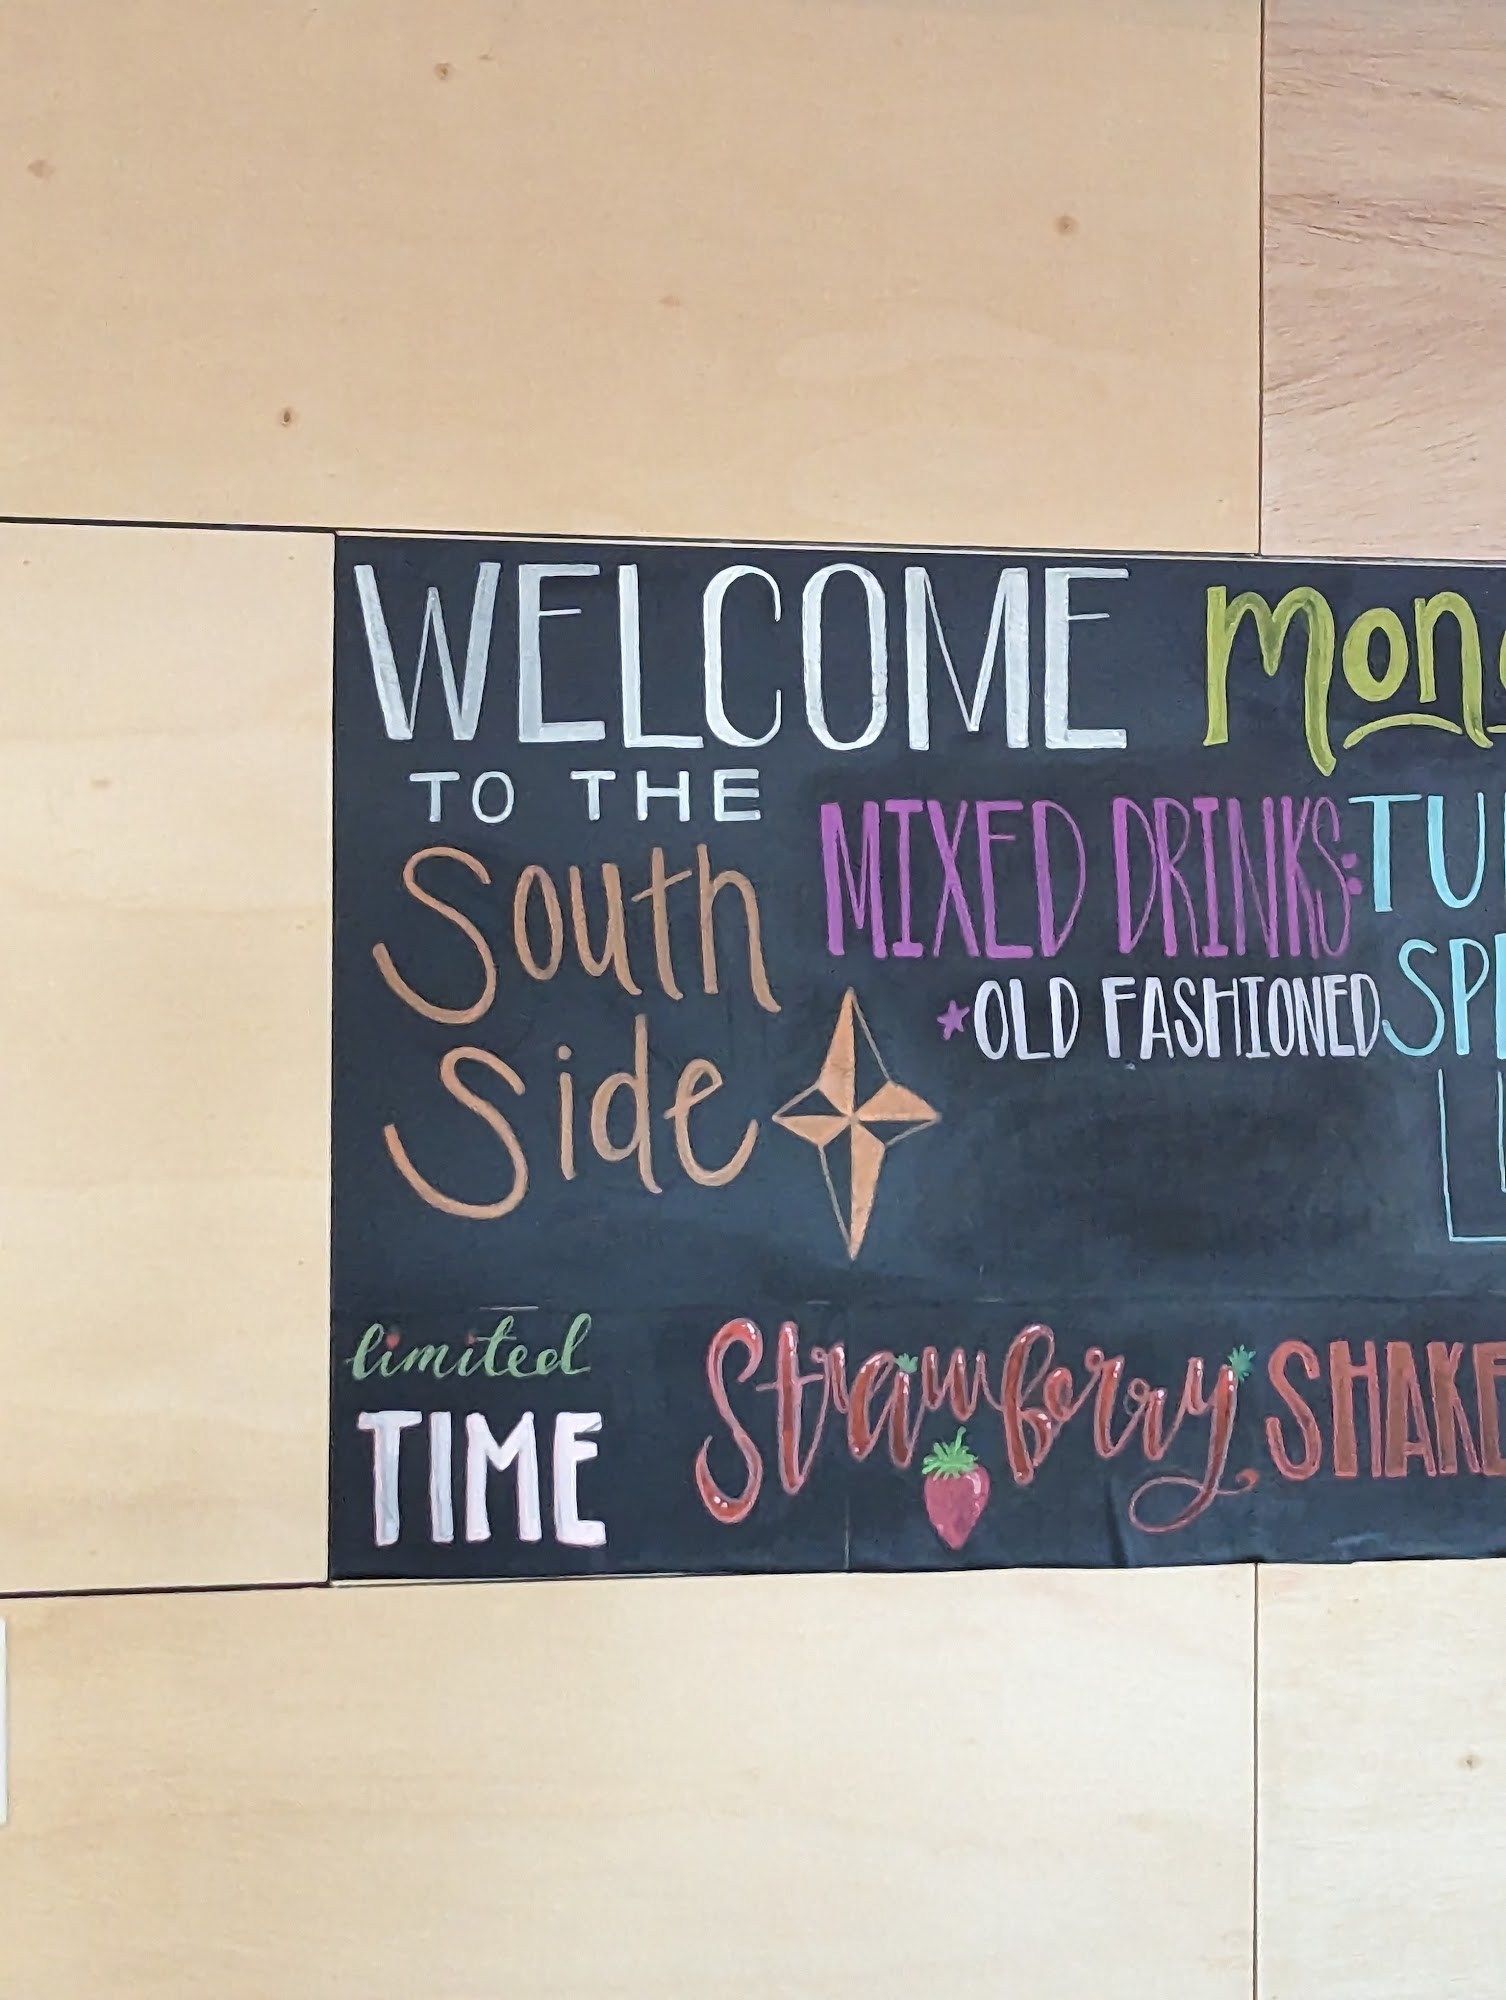 WELCOME
TO THE
South
Side
MIXED DRINKS:
*OLD FASHIONED
limited
TIME
Strawberry SHAKE